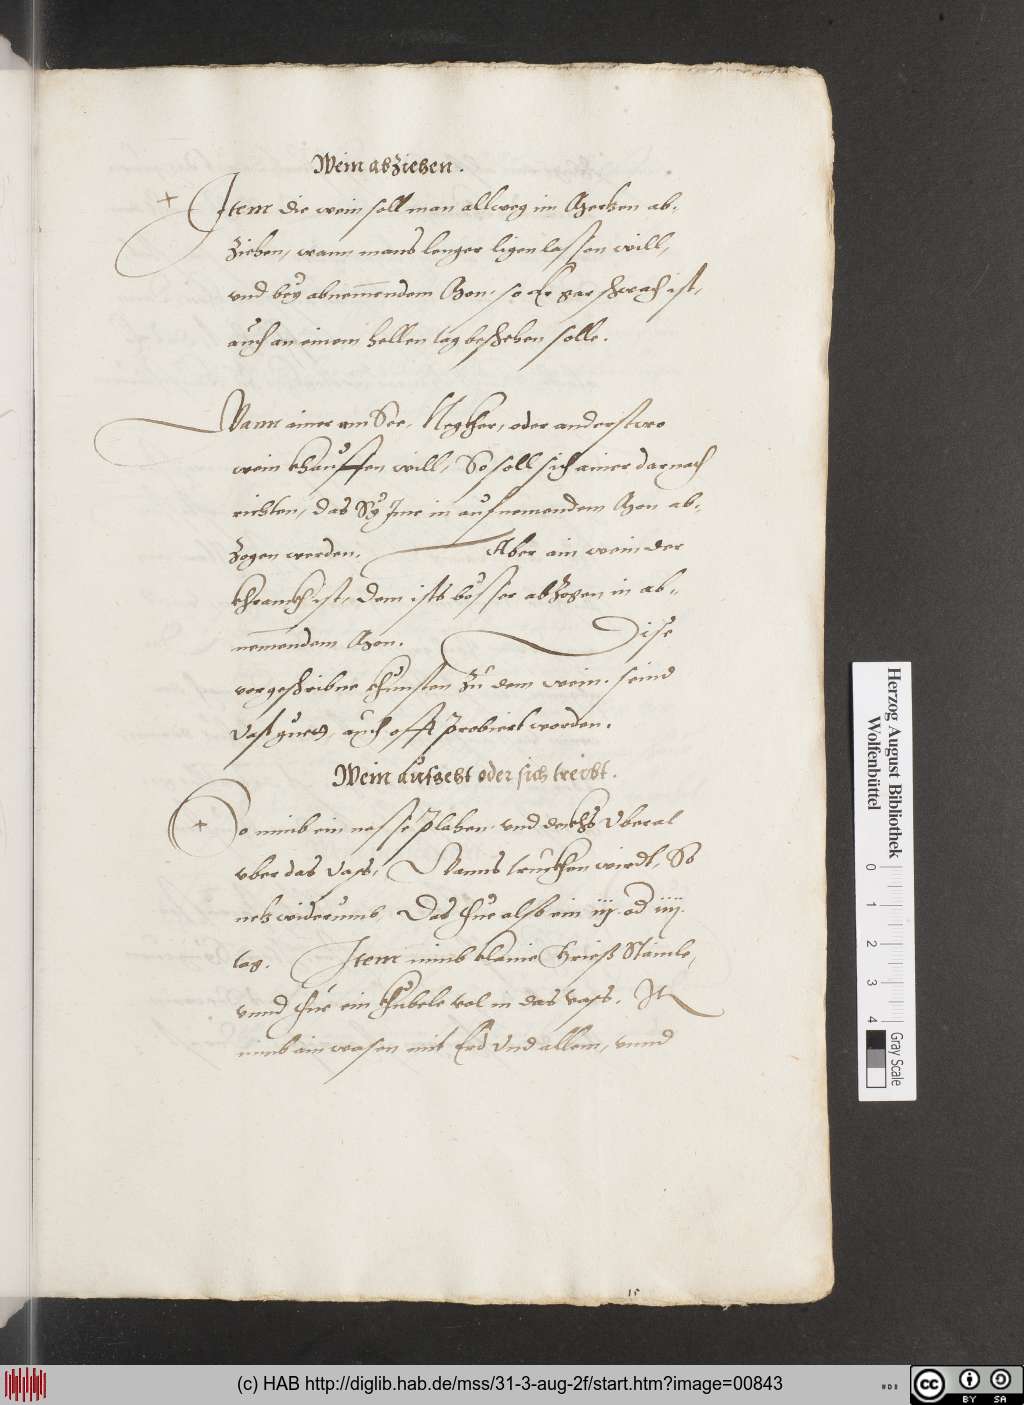 Wein abziehen.
+ Item die wein soll man allweg im Mertzen ab-
ziehen, wann mans lenger ligen lassen will,
und bey abnemendem Mon. so er gar schwach ist,
auch an einem hellen tag beschehen solle.
Wann ainer am See, Negkher, oder anderstwo
wein khauffen will, So soll sich ainer darnach
richten, das Sy Ime in aufnemendem Mon ab-
zogen werden. Aber ain wein der
khranckh ist, dem ists bösser abzogen in ab-
nemendem Mon. Dise
vorgeschribne khunsten zu dem wein. seind
vast guett, auch offt probiert worden.
Wein aufsetzt oder sich treibt.
+ So nimb ein nasse plahen und deckhs Uberal
uber das vass, Wanns truckhen wirdt, So
netz widerumb, Das thue also ein iij. od iiij.
tag. Item nimb klaine Griess Stainle,
unnd thue ein khübele vol in das vass. It
nimb ain wasen mit Erd Und allem, unnd
15
Herzog August Bibliothek
Wolfenbüttel
0 1 2 3 4
Gray Scale
(c) HAB http://diglib.hab.de/mss/31-3-aug-2f/start.htm?image=00843
cc BY SA